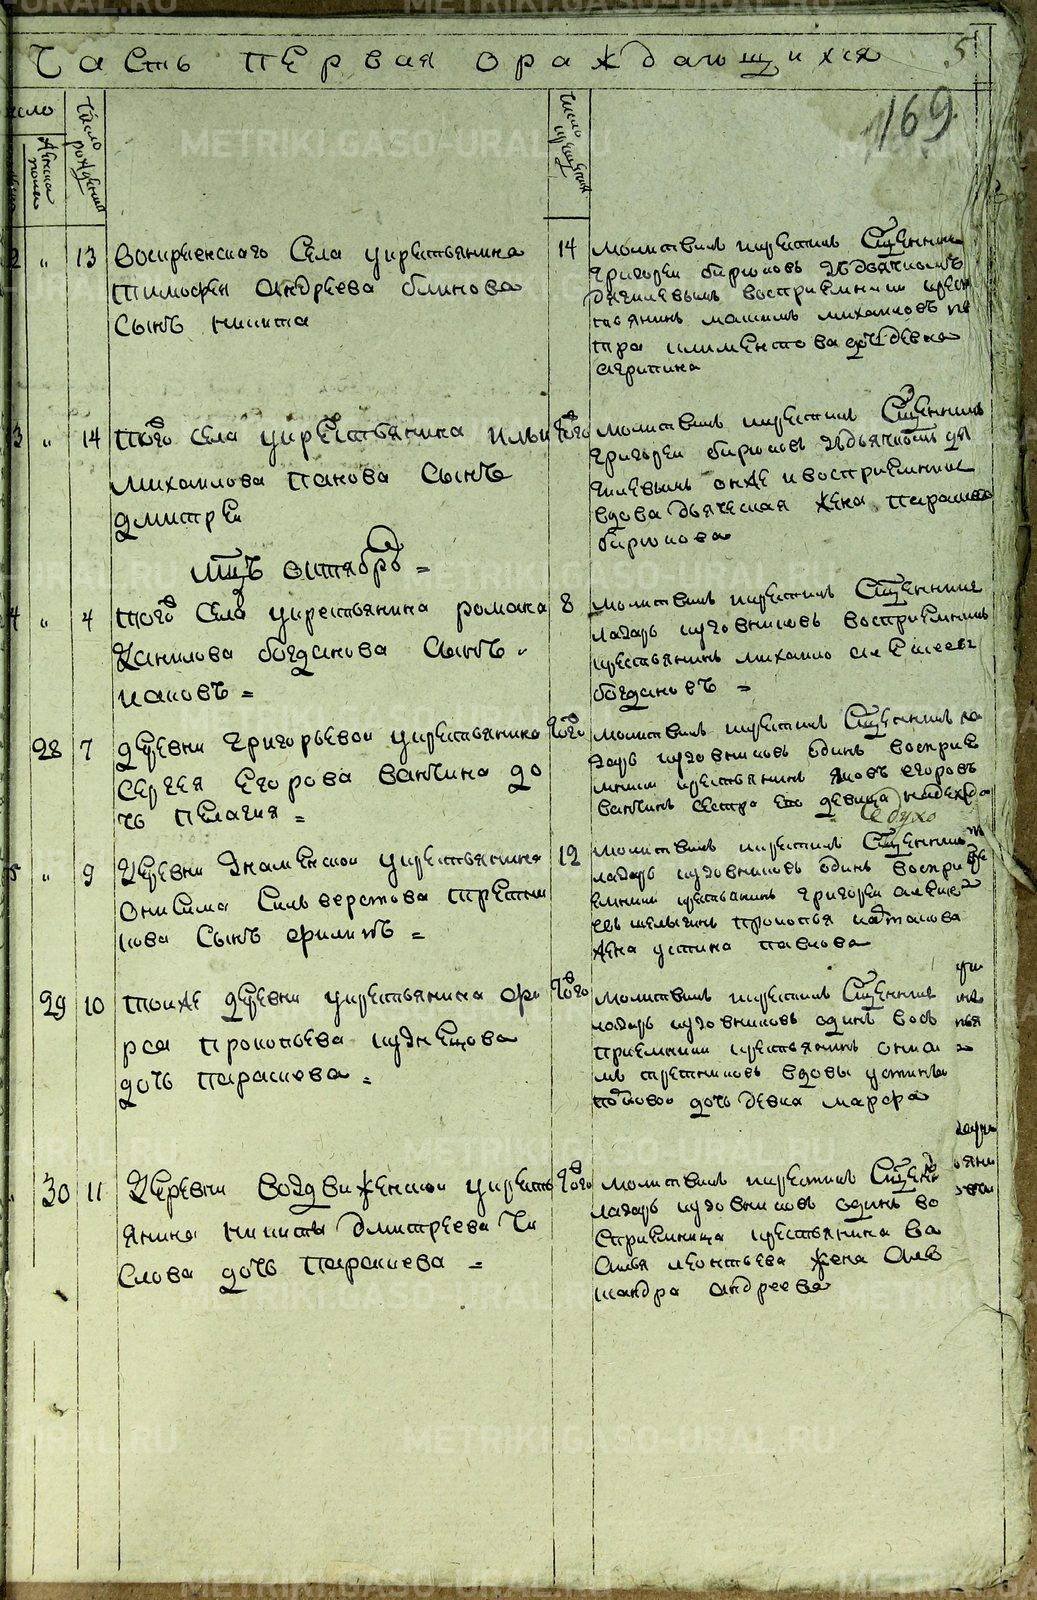 Часть первая ораждающихся
5
169
число
Женска полу
Число рождения
Число крещения
" 13 Воскресенскаго Села у крестьянина
Тимофея Андреева блинова
Сынъ никита
14 молитвилъ крестилъ Сщенникъ
григореи бирюковъ зъдьячкомъ
восприемники крест
ьянинъ максимъ михаиловъ
девка
агрипина
" 14 того Села у крестьянина ильи
михаилова панова Сынъ
дмитреи
того молитвилъ крестилъ Сщенникъ
григореи бирюковъ зъдьячкомъ
онже ивосприемникъ
вдова дьяческая жена парасковья
бирюкова
мцъ октябрь =
4 " 4 того Села у крестьянина романа
данилова богданова Сынъ
иаковъ =
8 молитвилъ крестилъ Сщенникъ
лазарь кудовниковъ восприемникъ
крестьянинъ михаило алексеевъ
богдановъ =
28 7 деревни григорьевои у крестьянина
сергея егорова ванчина до
чь пелагия =
того молитвилъ крестилъ Сщенникъ ла
зарь кудовниковъ одинъ восприе
мники крестьянинъ яковъ егоровъ
ванчинъ сестра ево девица надежда
5 " 9 деревни Знаменскои у крестьянина
онисима Сильверстова третни
кова Сынъ филипъ =
12 молитвилъ крестилъ Сщенникъ
лазарь кудовниковъ одинъ воспри
емники крестьянинъ григореи алексе
евъ прокопья
жена устина павлова
29 10 тоиже деревни у крестьянина фи
рса прокопьева кузнецова
дочь парасковья =
того молитвилъ крестилъ Сщенникъ
лазарь кудовниковъ одинъ вос
приемники крестьянинъ ониси
мъ третниковъ вдовы устиньи
дочь девка марфа
30 11 деревни воздвиженскои у крестъ
янина никиты дмитреева чи
слова дочь парасковья =
того молитвилъ крестилъ Сщенникъ
лазарь кудовниковъ одинъ во
сприемница крестьянина ва
силья леонтьева жена алек
сандра андреева
METRIKI.GASO-URAL.RU